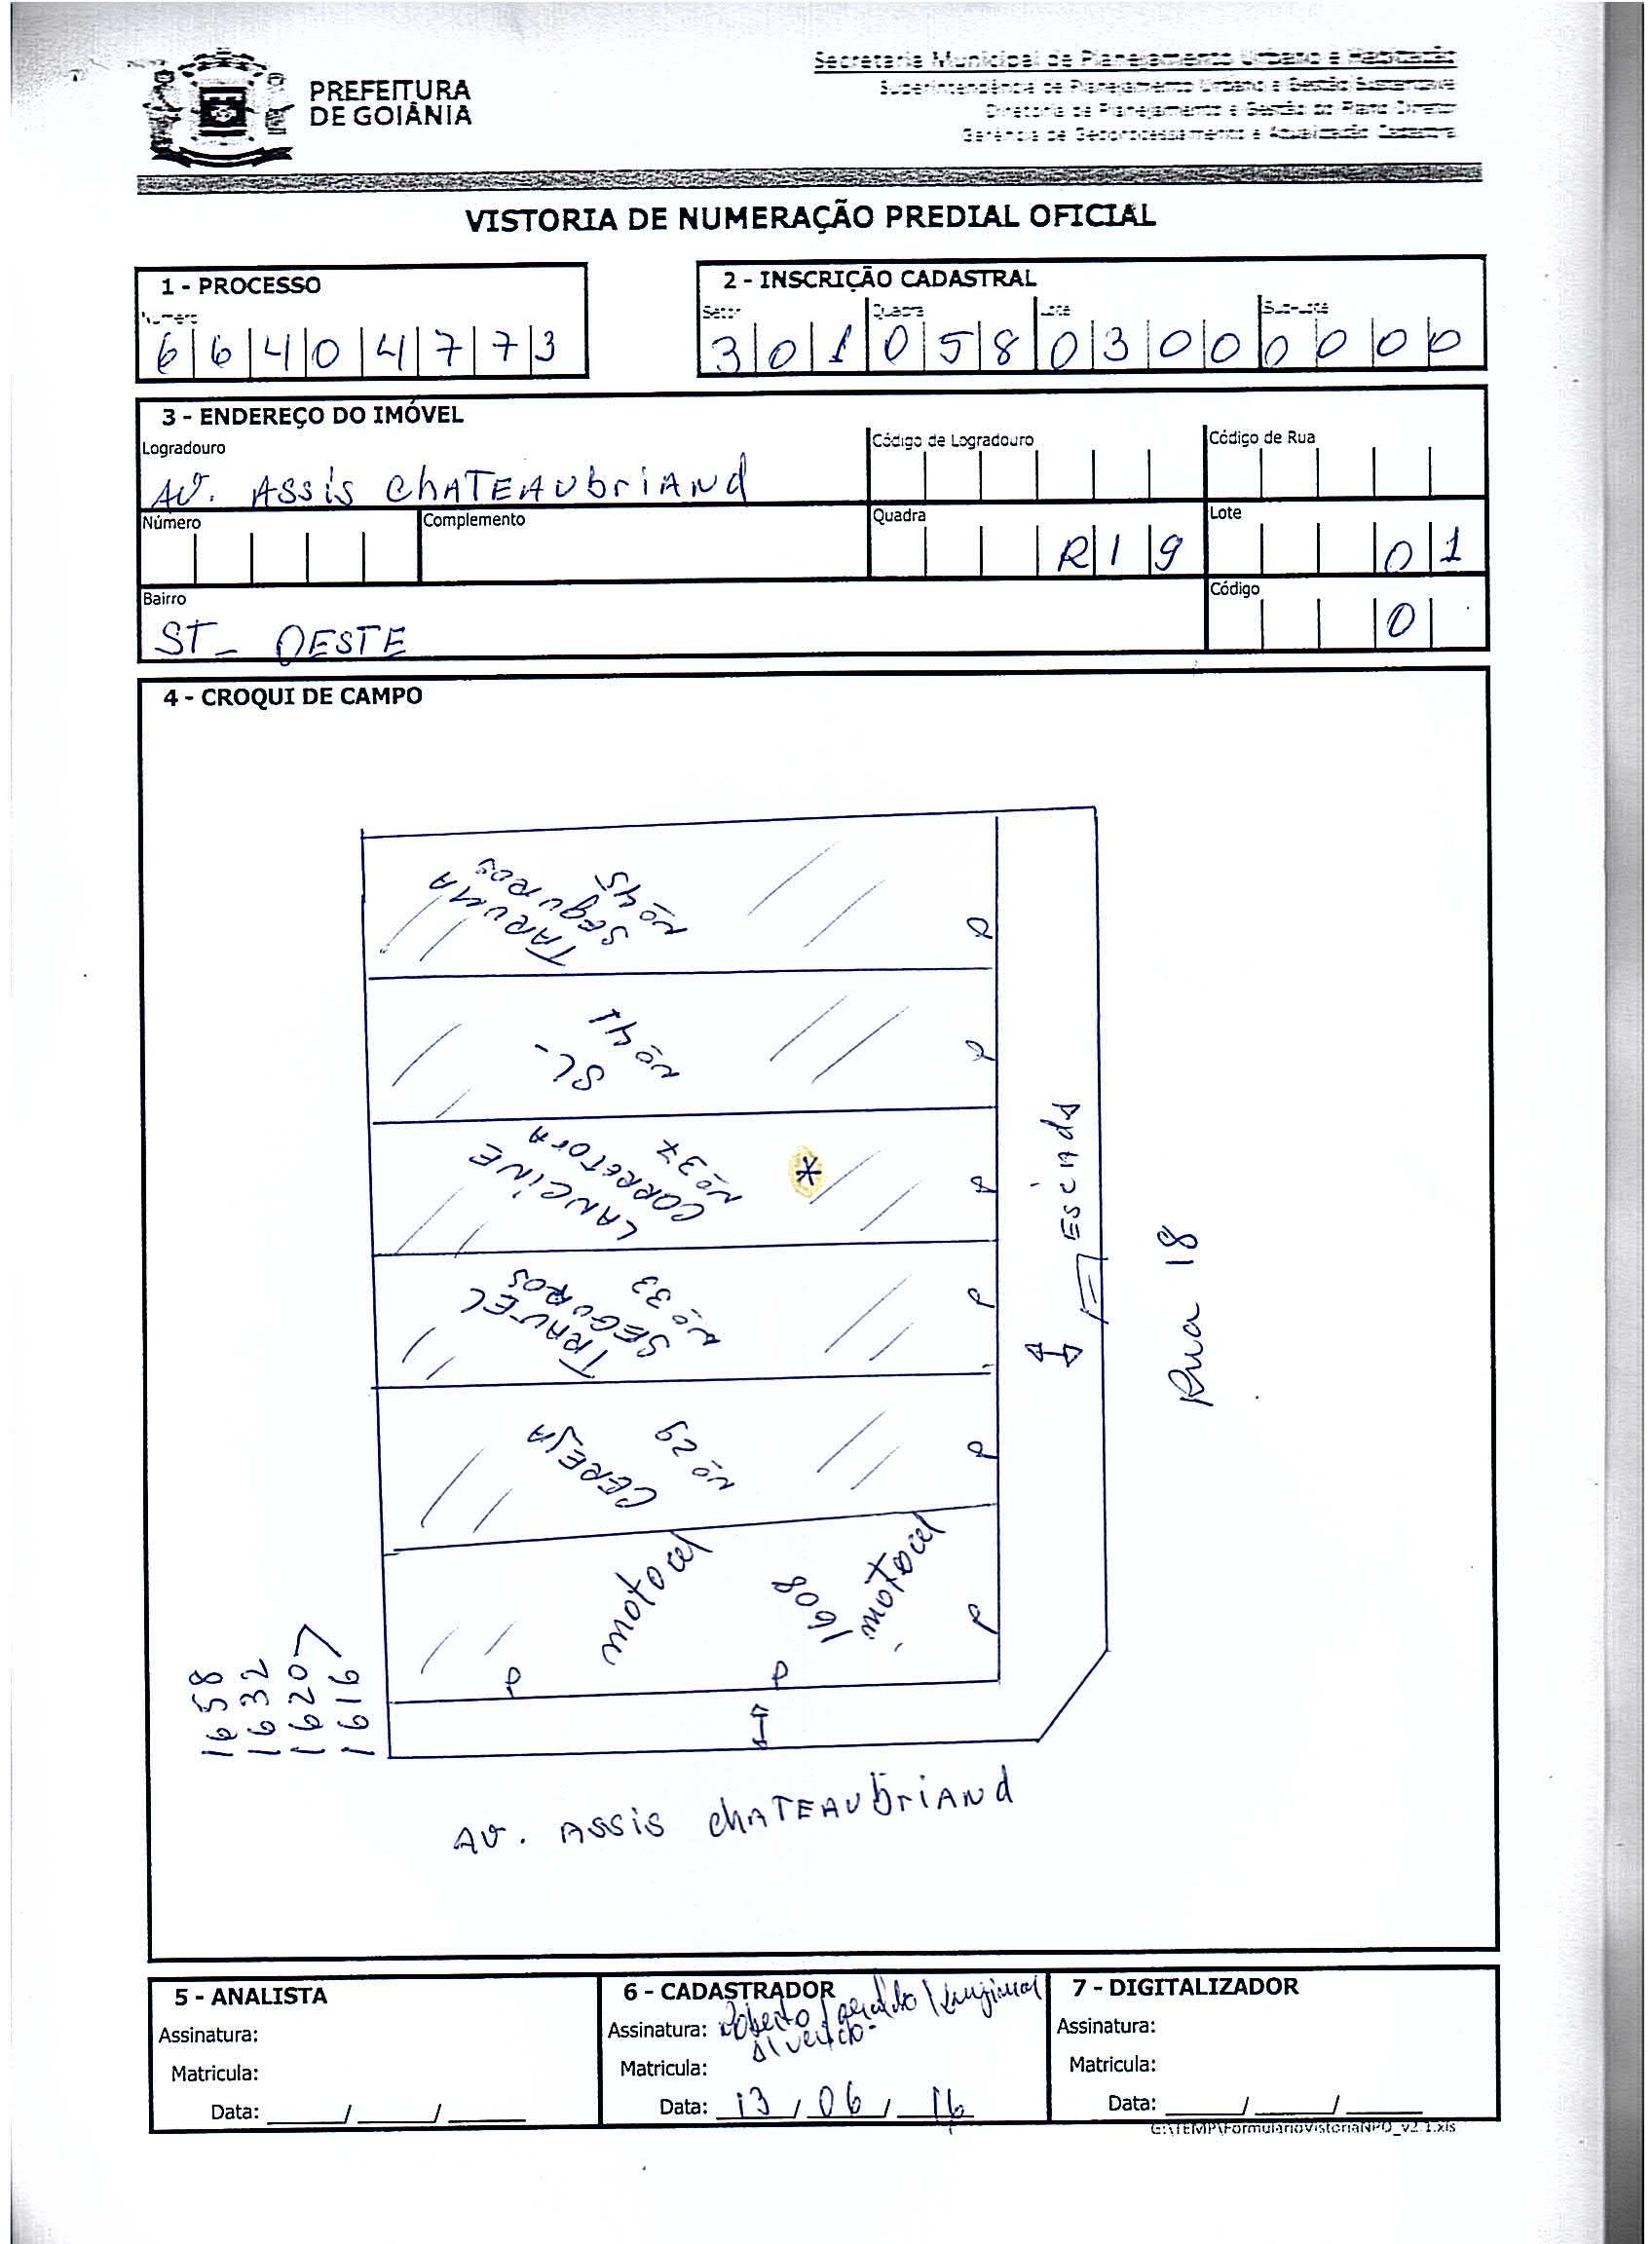 PREFEITURA
DE GOIÂNIA
Secretaria Municipal de Planejamento Urbano e Habitação
Superintendência de Planejamento Urbano e Gestão Sustentável
Diretoria de Planejamento e Gestão do Plano Diretor
Gerência de Geoprocessamento e Atualização Cadastral
VISTORIA DE NUMERAÇÃO PREDIAL OFICIAL
1 - PROCESSO
Número
6 6 4 0 4 7 7 3
2 - INSCRIÇÃO CADASTRAL
Setor Quadra Lote Sub-Lote
3 0 1 0 5 8 0 3 0 0 0 0 0 0
3 - ENDEREÇO DO IMÓVEL
Logradouro
AV. ASSIS ChATEAUbriANd
Código de Logradouro
Código de Rua
Número
Complemento
Quadra
R 1 9
Lote
0 1
Bairro
ST- OESTE
Código
0
4 - CROQUI DE CAMPO
TARUMA
SEGUROS
Nº 45
P
SL-
Nº 41
P
LANCINE
CORRETORA
Nº 37
*
P
TRAVEL
SEGUROS
Nº 33
P
CEREJA
Nº 29
P
motocel
1608
motocel
P
P
P
Escada
Rua 18
1658
1632
1620
1616
AV. ASSIS ChATEAUbriANd
5 - ANALISTA
Assinatura:
Matricula:
Data: / /
6 - CADASTRADOR
Assinatura: Roberto / Geraldo /
Matricula:
Data: 13 / 06 / 16
7 - DIGITALIZADOR
Assinatura:
Matricula:
Data: / /
G:\TEMP\FormularioVistoriaNPO_v2.1.xls